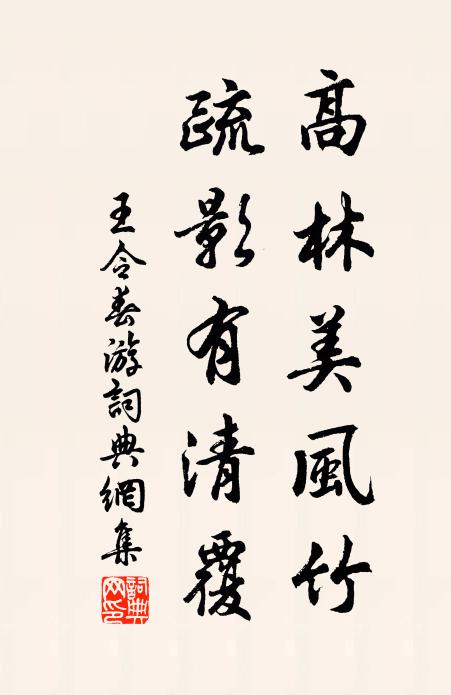 高林美風竹
疏影有清覆
王令春游詞典網集
詞典网印